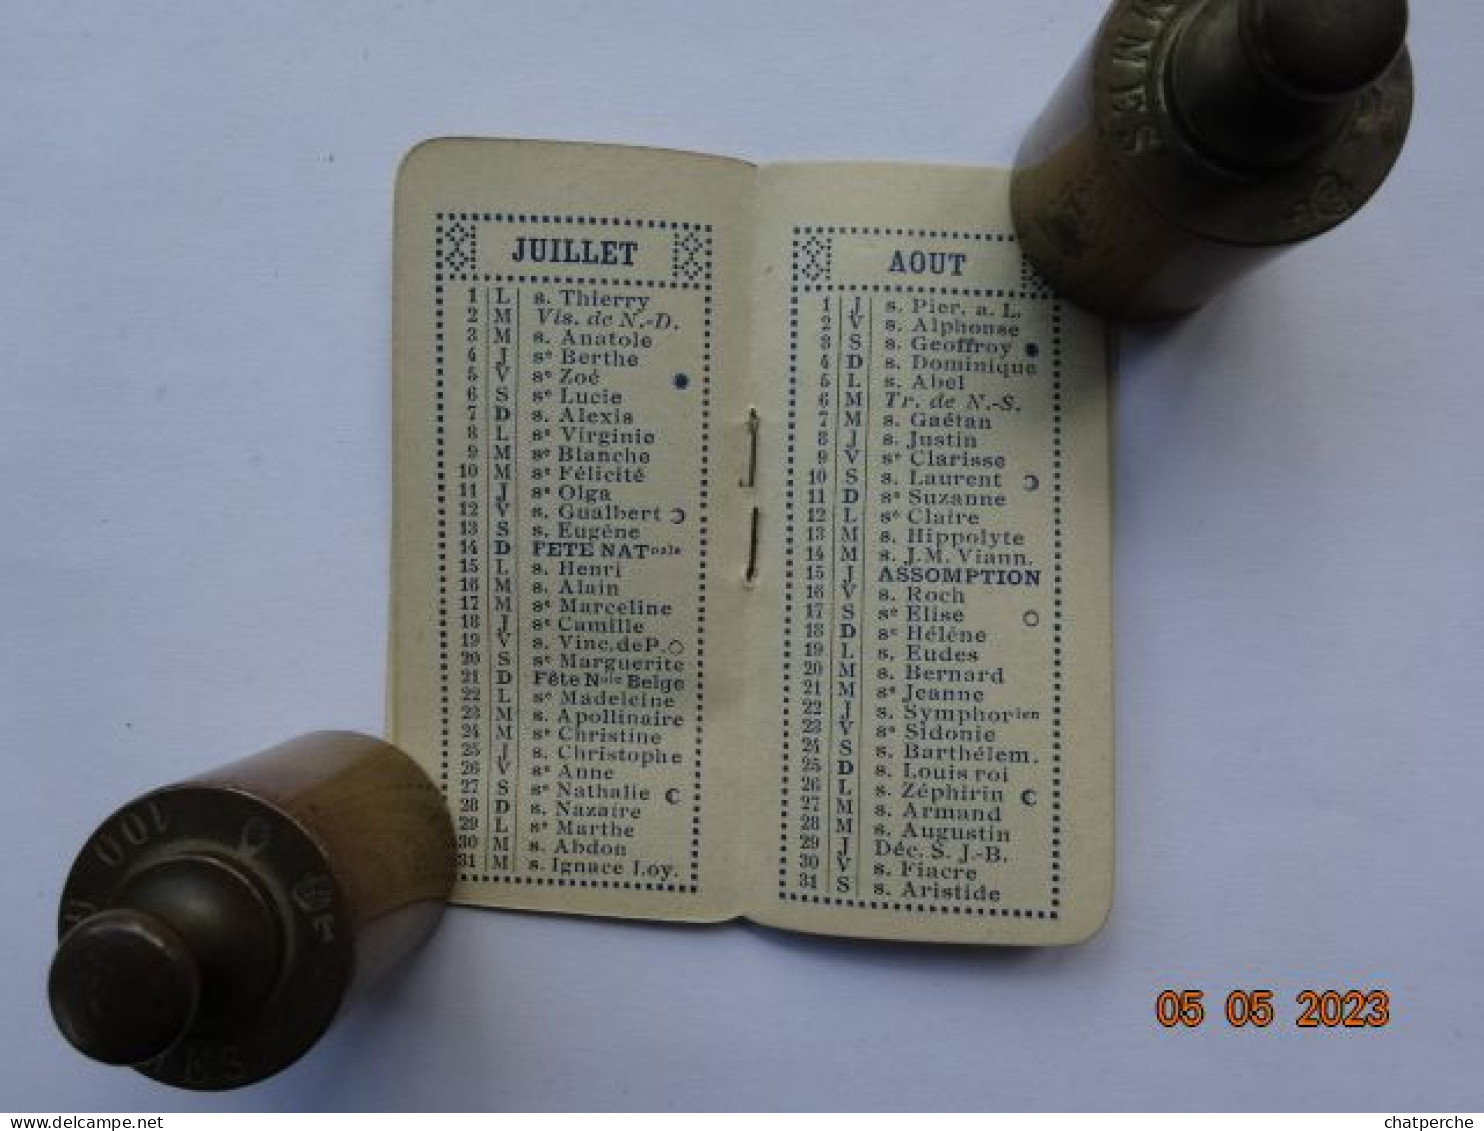 JUILLET
1 L s. Thierry
2 M Vis. de N.-D.
3 M s. Anatole
4 J sᵉ Berthe
5 V sᵉ Zoé ●
6 S sᵉ Lucie
7 D s. Alexis
8 L sᵉ Virginie
9 M sᵉ Blanche
10 M sᵉ Félicité
11 J sᵉ Olga
12 V s. Gualbert ☽
13 S s. Eugène
14 D FETE NATᵒⁿᵃˡᵉ
15 L s. Henri
16 M s. Alain
17 M sᵉ Marceline
18 J sᵉ Camille
19 V s. Vinc. de P. ○
20 S sᵉ Marguerite
21 D Fête Nᵃˡᵉ Belge
22 L sᵉ Madeleine
23 M s. Apollinaire
24 M sᵉ Christine
25 J s. Christophe
26 V sᵉ Anne
27 S sᵉ Nathalie ☾
28 D s. Nazaire
29 L sᵉ Marthe
30 M s. Abdon
31 M s. Ignace Loy.
AOUT
1 J s. Pier. a. L.
2 V s. Alphonse
3 S s. Geoffroy ●
4 D s. Dominique
5 L s. Abel
6 M Tr. de N.-S.
7 M s. Gaétan
8 J s. Justin
9 V sᵉ Clarisse
10 S s. Laurent ☽
11 D sᵉ Suzanne
12 L sᵉ Claire
13 M s. Hippolyte
14 M s. J.M. Viann.
15 J ASSOMPTION
16 V s. Roch
17 S sᵉ Elise ○
18 D sᵉ Hélène
19 L s. Eudes
20 M s. Bernard
21 M sᵉ Jeanne
22 J s. Symphorien
23 V sᵉ Sidonie
24 S s. Barthélem.
25 D s. Louis roi
26 L s. Zéphirin ☾
27 M s. Armand
28 M s. Augustin
29 J Déc. S. J.-B.
30 V s. Fiacre
31 S s. Aristide
100
05 05 2023
chatperche